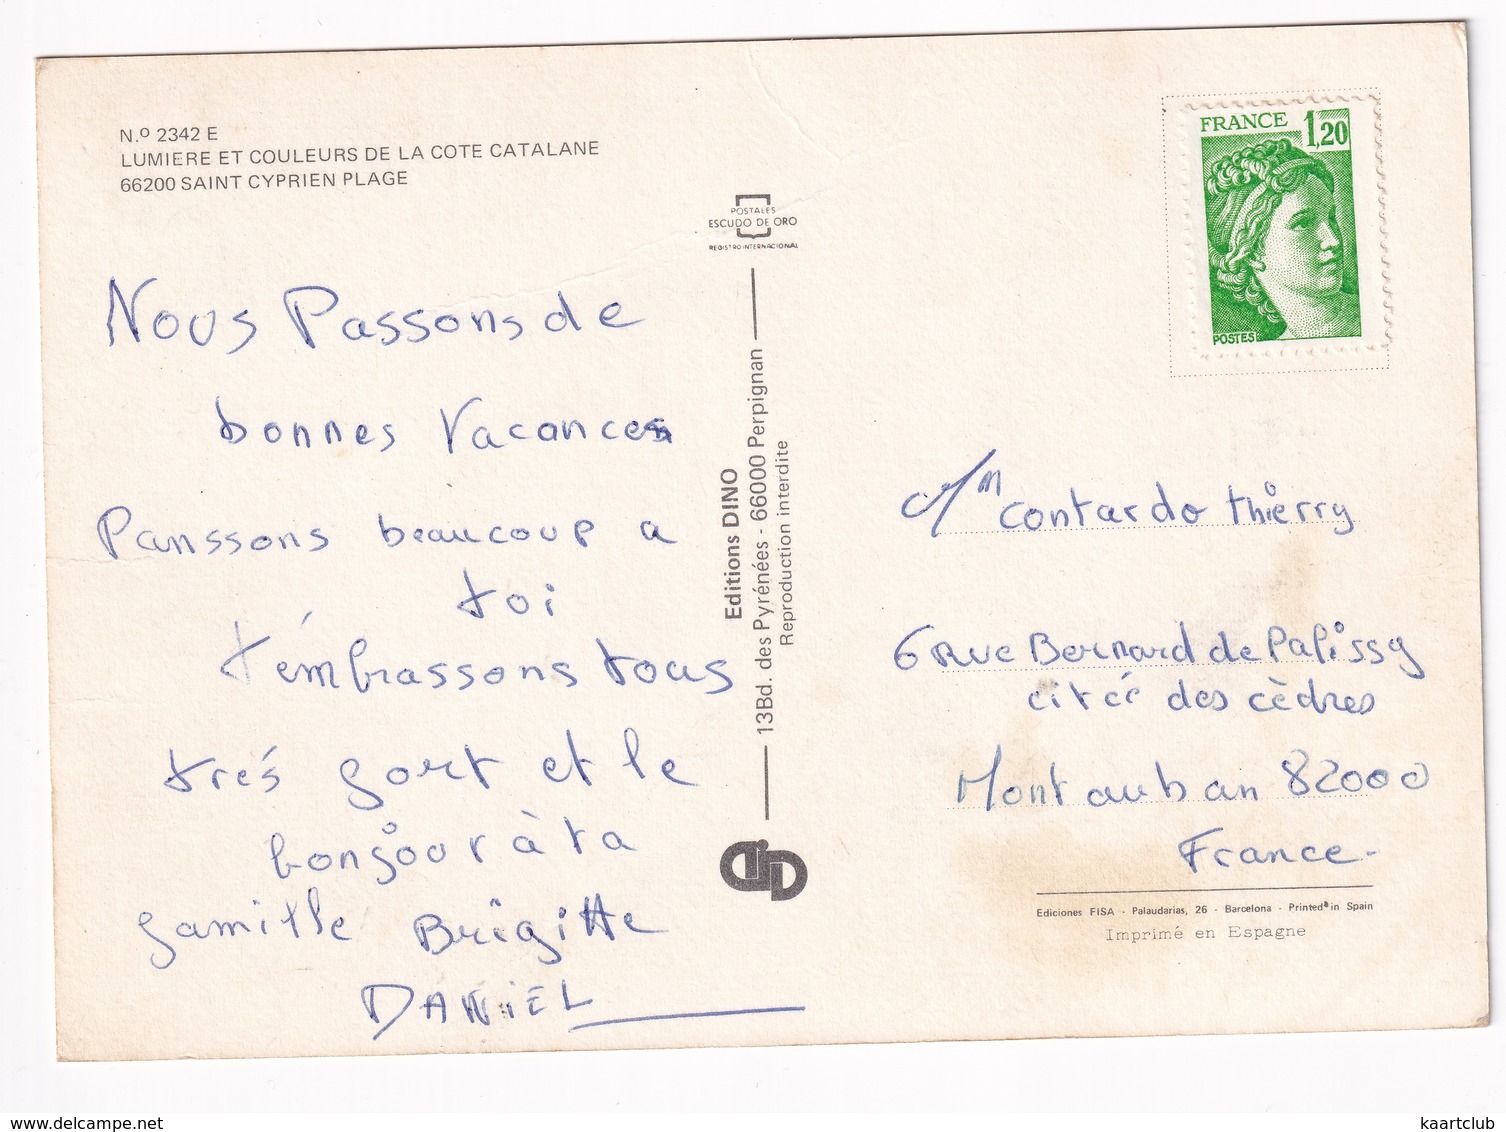 N.º 2342 E
LUMIERE ET COULEURS DE LA COTE CATALANE
66200 SAINT CYPRIEN PLAGE
Nous Passons de
bonnes Vacances
Panssons beaucoup a
toi
t'émbrassons tous
trés fort et le
bonjour à ta
famille Brigitte
DANIEL
POSTALES
ESCUDO DE ORO
REGISTRO INTERNACIONAL
Editions DINO
13Bd. des Pyrénées - 66000 Perpignan
Reproduction interdite
FRANCE 1,20
POSTES
Mm contardo thierry
6 Rue Bernard de Palissy
citée des cèdres
Montauban 82000
France -
Ediciones FISA - Palaudarias, 26 - Barcelona - Printed in Spain
Imprimé en Espagne
kaartclub